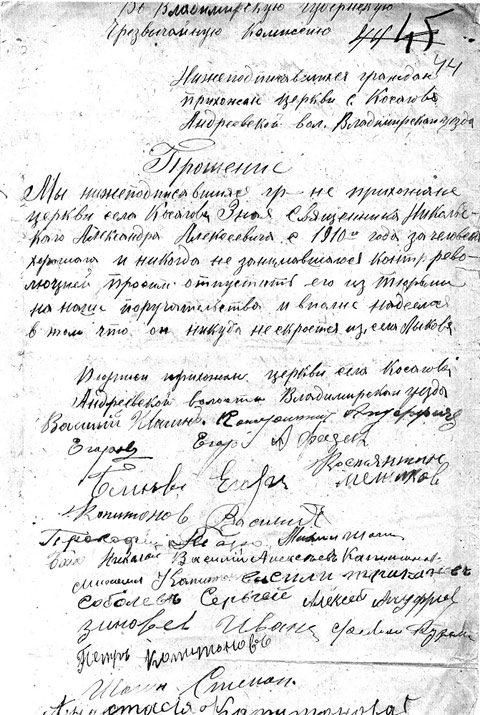 Во Владимирскую Губернскую
Чрезвычайную Комиссию 44 45
44
Нижеподписавшихся граждан
прихожан церкви с. Косагова
Андреевской вол. Владимирскаго уезда
Прошение
Мы нижеподписавшиеся гр-не прихожане
церкви села Косагова Зная Священника Николь-
каго Александра Алексеевича с 1910 го года за человека
хорошаго и никогда не занимавшаося контр рево-
люцией просим отпустить его из тюрьмы
на наши поручательства и вполне надеемся
в том что он никуда не скроется из села Лыкова
Подписи прихожан церкви села Косагова
Андреевской волости Владимирскаго уезда
Василий Константин
Егаров Егар Фадеев
Костянтин
Зиновев Егор Мешков
Капитонов Василий
Николай Василий Алексеев Капитонов
Соболевъ Сергей Алексей Ануфриев
Зиновев Иван
Петръ Капитоновъ
Шашин Степан
Анастасія Капитонова